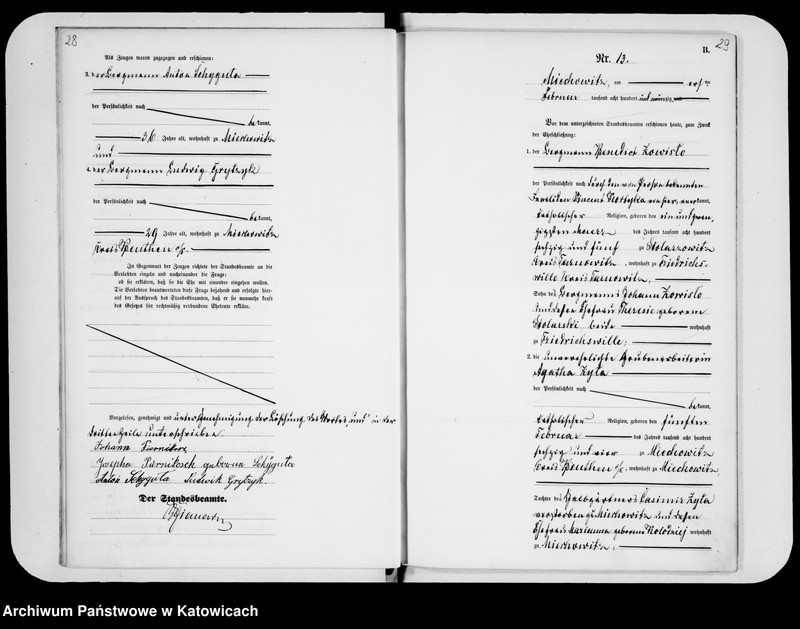 28
Als Zeugen waren zugezogen und erschienen:
3. der Bergmann Anton Schyguta
der Persönlichkeit nach
bekannt,
36 Jahre alt, wohnhaft zu Miechowitz
und
4. der Bergmann Ludwig Grytzyk
der Persönlichkeit nach
bekannt,
29 Jahre alt, wohnhaft zu Miechowitz
Kreis Beuthen O/S.
In Gegenwart der Zeugen richtete der Standesbeamte an die
Verlobten einzeln und nacheinander die Frage:
ob sie erklären, daß sie die Ehe mit einander eingehen wollen.
Die Verlobten beantworteten diese Frage bejahend und erfolgte hier-
auf der Ausspruch des Standesbeamten, daß er sie nunmehr kraft
des Gesetzes für rechtmäßig verbundene Eheleute erkläre.
Vorgelesen, genehmigt und unter Genehmigung der Löschung des Wortes "und" in der
dritten Zeile unterschrieben.
Johann
Josepha geborene Schyguta
Anton Schyguta Ludwik Grytzyk.
Der Standesbeamte.
29
B.
Nr. 13.
Miechowitz, am ersten
Februar tausend acht hundert und neunzig
Vor dem unterzeichneten Standesbeamten erschienen heute, zum Zweck
der Eheschließung:
1. der Bergmann Benedict Kowislo
der Persönlichkeit nach durch den von Person bekannten
Familien Vincent Kottyka von hier, anerkannt,
katholischer Religion, geboren den einundzwan-
zigsten Maerz des Jahres tausend acht hundert
sechzig und fünf zu Stolarzowitz
Kreis Tarnowitz, wohnhaft zu Friedrichs-
wille Kreis Tarnowitz,
Sohn des Bergmanns Johann Kowislo
und dessen Ehefrau Theresie geborene
Stolarski beide wohnhaft
zu Friedrichswille;
2. die unverehelichte Grubenarbeiterin
Agatha Zyla
der Persönlichkeit nach
bekannt,
katholischer Religion, geboren den fünften
Februar des Jahres tausend acht hundert
sechzig und vier zu Miechowitz
Kreis Beuthen O/S., wohnhaft zu Miechowitz,
Tochter des Casimir Zyla
verstorben zu Miechowitz und dessen
Ehefrau Marianna geborene Kolodziej wohnhaft
zu Miechowitz;
Archiwum Państwowe w Katowicach